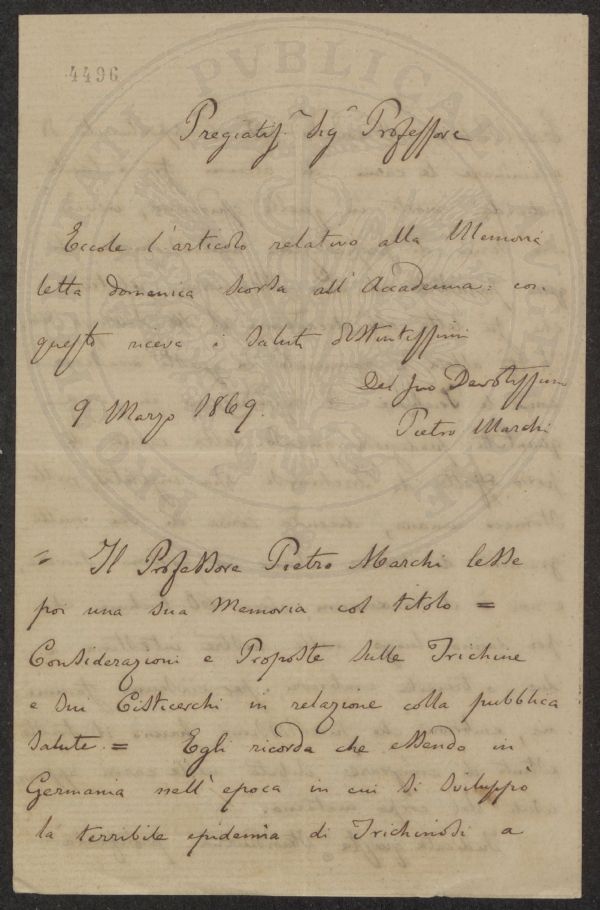 4496
Pregiatis.mo Sig.r Professore
Eccole l'articolo relativo alla Memoria
letta domenica scorsa all'Accademia: con
questo riceva i saluti distintissimi
Del suo Devotissimo
9 Marzo 1869.
Pietro Marchi
= Il Professore Pietro Marchi lesse
poi una sua Memoria col titolo =
Considerazioni e Proposte sulle Trichine
e sui Cisticerchi in relazione colla pubblica
salute. = Egli ricorda che essendo in
Germania nell'epoca in cui si sviluppò
la terribile epidemia di Trichinosi a